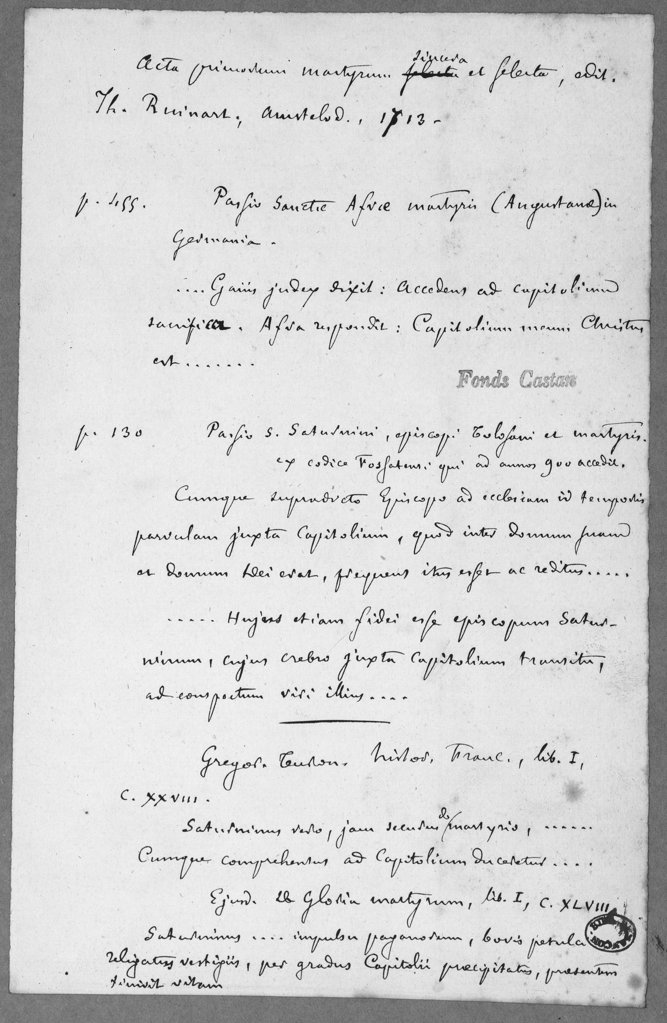 Acta primorum martyrum selecta sincera et selecta, edit.
Th. Ruinart, Amstelod., 1713.
p. 455. Passio Sanctæ Afræ martyris (Augustanæ) in
Germania.
....Gaius judex dixit: Accedens ad capitolium
sacrifica. Afra respondit: Capitolium meum Christus
est.......
Fonds Castan
p. 130 Passio S. Saturnini, episcopi Tolosani et martyris.
ex codice Fossatensi qui ad annos 900 accedit.
Cumque supradicto Episcopo ad ecclesiam id temporis
parvulam juxta Capitolium, quod inter domum suam
et domum Dei erat, frequens itus esset ac reditus.....
..... Hujus etiam fidei esse episcopum Satur-
ninum, cujus crebro juxta Capitolium transitu,
ad conspectum viri illius....
Gregor. Turon. histor. Franc., lib. I,
c. XXVIII.
Saturninus vero, jam securus de martyrio, ......
Cumque comprehensus ad Capitolium duceretur....
Ejusd. De Gloria martyrum, lib. I, c. XLVIII.
Saturninus .... impulsu paganorum, bovis petulci
religatus vestigiis, per gradus Capitolii præcipitatus, præsentem
finivit vitam